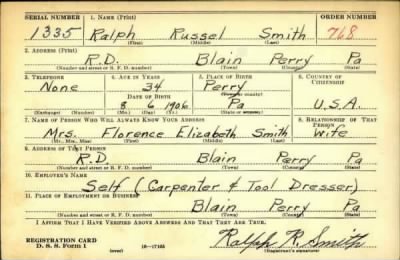 SERIAL NUMBER 1. NAME (Print) ORDER NUMBER
1335 Ralph Russel Smith 768
(First) (Middle) (Last)
2. ADDRESS (Print)
R.D. Blain Perry Pa
(Number and street or R. F. D. number) (Town) (County) (State)
3. TELEPHONE 4. AGE IN YEARS 5. PLACE OF BIRTH 6. COUNTRY OF CITIZENSHIP
None 34 Perry
DATE OF BIRTH (Town or county)
8 6 1906 Pa U.S.A.
(Exchange) (Number) (Mo.) (Day) (Yr.) (State or country)
7. NAME OF PERSON WHO WILL ALWAYS KNOW YOUR ADDRESS 8. RELATIONSHIP OF THAT PERSON
Mrs. Florence Elizabeth Smith Wife
(Mr., Mrs., Miss) (First) (Middle) (Last)
9. ADDRESS OF THAT PERSON
R.D. Blain Perry Pa
(Number and street or R. F. D. number) (Town) (County) (State)
10. EMPLOYER'S NAME
Self (Carpenter & Tool Dresser)
11. PLACE OF EMPLOYMENT OR BUSINESS
Blain Perry Pa
(Number and street or R. F. D. number) (Town) (County) (State)
I AFFIRM THAT I HAVE VERIFIED ABOVE ANSWERS AND THAT THEY ARE TRUE.
REGISTRATION CARD
D. S. S. Form 1 (over) 16—17105 Ralph R. Smith
(Registrant's signature)